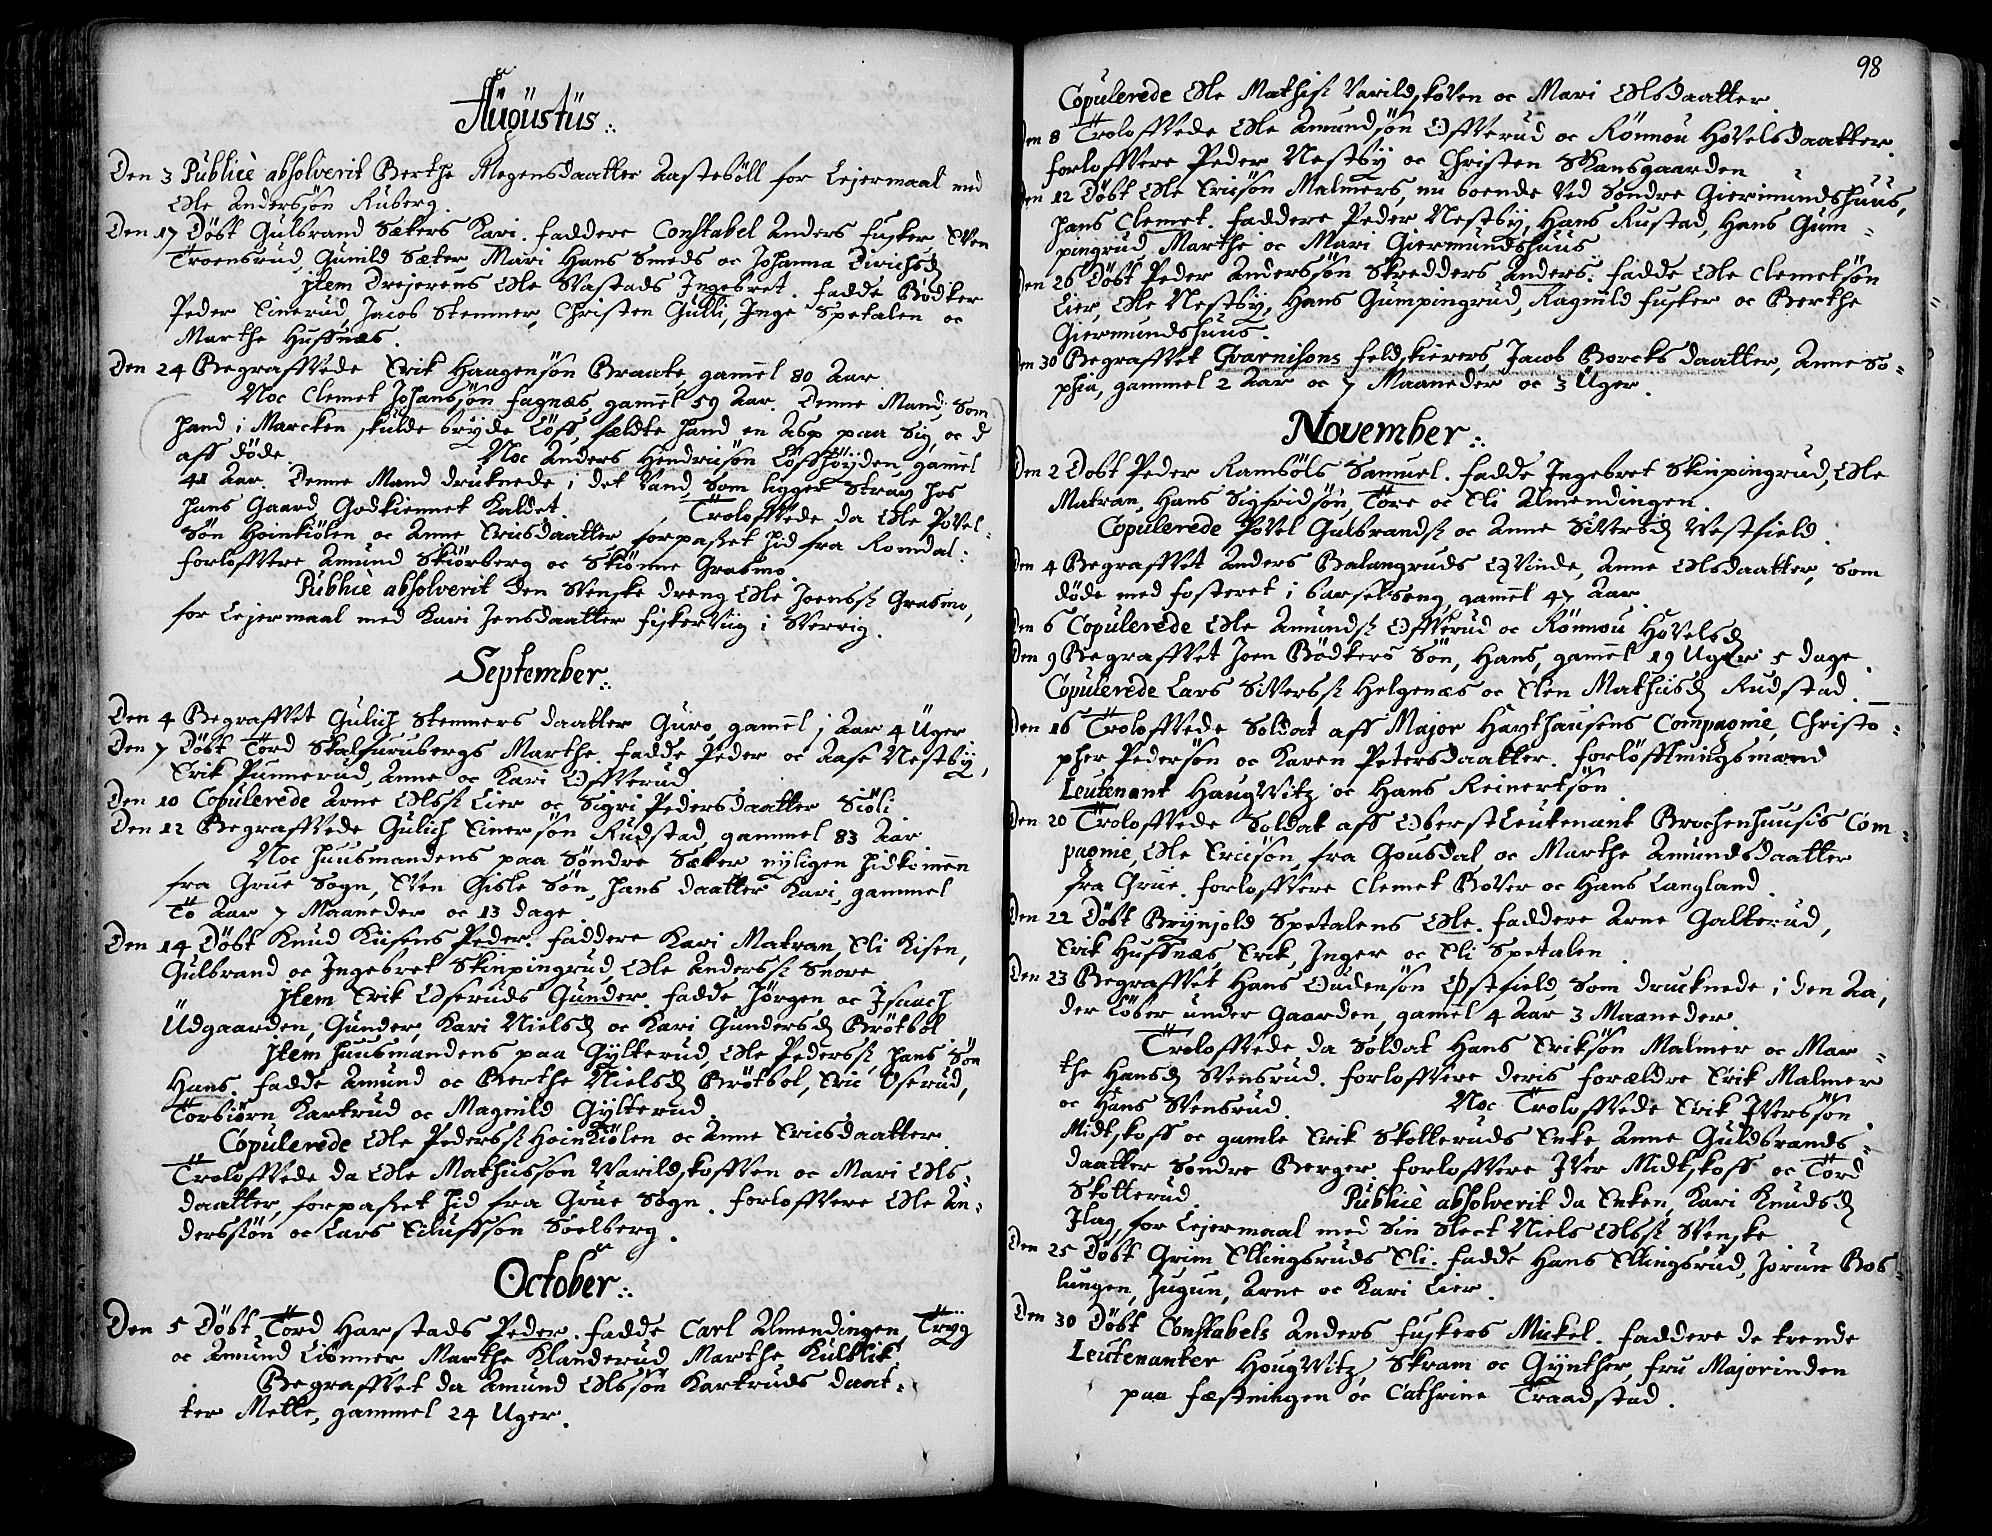 Augustus.
Den 3 Publicè absolverit Berthe Mogensdaatter Aastebøll for Lejermaal med
Ole Anderssøn Ruberg.
Den 17 Døbt Gulbrand Sæters Kari. Faddere Constabel Anders Fusker, Sven
Troensrud, Gunild Sæter, Mari Hans Smeds oc Johanna Dirichsd
jtem Drejerens Ole Vastads Ingebret. Fadde Bødker
Peder Einerud, Jacob Stemner, Christen Gulli, Inge Spetalen oc
Marthe Huffnæs.
Den 24 Begraffvede Erik Haagensøn Braate, gamel 80 Aar
Noc Clemet Johanssøn Fagnæs, gamel 59 Aar. Denne Mand, Som
hand i Marcken skulde bryde Løff, fældte hand en Asp paa sig, oc d
aff døde. Noc Anders Hendricsøn Løffhøyden, gamel
41 Aar. Denne Mand drucknede i det Vand, Som ligger Strax hos
hans Gaard, Godkiennet Kaldet. Troloffvede da Ole Povel-
søn Hoinkiølen oc Anne Ericsdaatter forpasset hid fra Romdal:
Forloffvere Amund Skiørberg oc Skiønne Grasmo.
Publicè absolverit den Svenske dreng Ole Joenss: Grasmo,
for Lejermaal med Kari Jensdaatter Fiskervig i Sverrig.
September.
Den 4 Begraffvet Gulich Stemners daatter Guro, gamel j Aar 4 Uger
Den 7 Døbt Tord Skalfurubergs Marthe. Fadde Peder oc Aase Nestby,
Erik Punnerud, Anne oc Kari Offverud
Den 10 Copulerede Arne Olss: Lier oc Sigri Pedersdaatter Siøli
Den 12 Begraffvede Gulich Einersøn Rudstad, gammel 83 Aar
Noc huusmandens paa Søndre Sæter nyligen hidkommen
fra Grue Sogn, Sven Gisle Søn, hans daatter Kari, gammel
To Aar 7 Maaneder oc 13 dage
Den 14 Døbt Knud Kiisens Peder. Faddere Kari Matran, Eli Kisen,
Gulbrand oc Ingebret Skinpingrud, Ole Anderss: Snore
jtem Erik Oseruds Gunder. Fadde Jørgen oc Isaach
Udgaarden, Gunder, Kari Nielsd oc Kari Gundersd Brøtbøl
jtem huusmandens paa Gylterud, Ole Pederss: hans Søn
Hans. Fadde Amund oc Berthe Nielsd Brøtbøl, Eric Oserud,
Torbiørn Kartrud oc Magnild Gylterud.
Copulerede Ole Pederss: Hoinkiølen oc Anne Ericsdaatter.
Troloffvede da Ole Mathiissøn Varildskoffven oc Mari Ols-
daatter, forpasset hid fra Grue Sogn. Forloffvere Ole An-
derssøn oc Lars Eiluffsøn Soelberg.
October.
Den 5 Døbt Tord Harstads Peder. Fadde Carl Almendingen, Tryg
oc Amund Lionner, Marthe Klanderud, Marthe Kulblik.
Begraffvet da Amund Olssøn Kartruds daat-
ter Mette, gammel 24 Uger.
98
Copulerede Ole Mathiss: Varildskoven oc Mari Olsdaatter.
Den 8 Troloffvede Ole Amundsøn Offverud oc Rønnou Hovelsdaatter.
forloffvere Peder Nestby oc Christen Skansgaarden
Den 12 Døbt Ole Ericsøn Malmers, nu boende Ved Søndre Giermundshuus,
hans Clemet. Faddere Peder Nestby, Hans Rustad, Hans Gum-
pingrud, Marthe oc Mari Giermundshuus
Den 26 Døbt Peder Anderssøn Skredders Anders. Fadde Ole Clemetsøn
Lier, Ole Nestby, Hans Gumpingrud, Ragnild Fusker oc Berthe
Giermundshuus.
Den 30 Begraffvet Gvarnisons Feldskierers, Jacob Borcks daatter, Anne So-
phia, gammel 2 Aar oc 7 Maaneder oc 3 Uger.
November.
Den 2 Døbt Peder Ramsøls Samuel. Fadde Ingebret Skinpingrud, Ole
Matran, Hans Sigfridsøn, Tore oc Eli Almendingen.
Copulerede Povel Gulbrands: oc Anne Siversd Vestfield.
Den 4 Begraffvet Anders Balangruds Qvinde, Anne Olsdaatter, Som
døde med fosteret i barselseng, gamel 47 Aar.
Den 6 Copulerede Ole Amunds: Offverud oc Rønnou Hovelsd
Den 9 Begraffvet Joen Bødkers Søn, Hans, gamel 19 Uger 5 dage.
Copulerede Lars Siverss: Helgenæs oc Elen Mathiisd Rudstad.
Den 16 Troloffvede Soldat aff Major Haxthausens Compagnie, Christo-
pher Pedersøn oc Karen Petersdaatter. Forløfftningsmænd
Leutenant Haugwitz oc Hans Reinertsøn
Den 20 Troloffvede Soldat aff OberstLeutenant Brochenhuusis Com-
pagnie, Ole Ericsøn fra Gousdal, oc Marthe Amundsdaatter
fra Grue. Forloffvere Clemet Bover oc Hans Langland.
Den 22 Døbt Brynjold Spetalens Ole. Faddere Arne Galterud,
Erik Huffnæs, Erik, Inger oc Eli Spetalen.
Den 23 Begraffvet Hans Oudensøn Østfield, Som drucknede i den Aa,
der Løber under Gaarden, gamel 4 Aar 3 Maaneder.
Troloffvede da Soldat Hans Eriksøn Malmer oc Mar-
the Hansd Svensrud. Forloffvere deris forældre Erik Malmer
oc Hans Svensrud. Noc Troloffvede Erik Iverssøn
Midtskoff oc gamle Erik Skotteruds Enke, Anne Guldbrands-
daatter Søndre Berger. Forloffvere Iver Midtskoff oc Tord
Skotterud. Publicè absolverit da Enken, Kari Knudsd
Flag, for Lejermaal med Sin Slect Niels Olss: Svenske
Den 25 Døbt Grim Ellingsruds Eli. Fadde Hans Ellingsrud, Jorun Bos-
lungen, Jugun, Arne oc Kari Lier.
Den 30 Døbt Constabels Anders Fuskers Mickel. Faddere de trende
Leutenanter HougWitz, Skram oc Gynther, Fru Majorinden
paa Fæstningen oc Cathrine Traadstad.